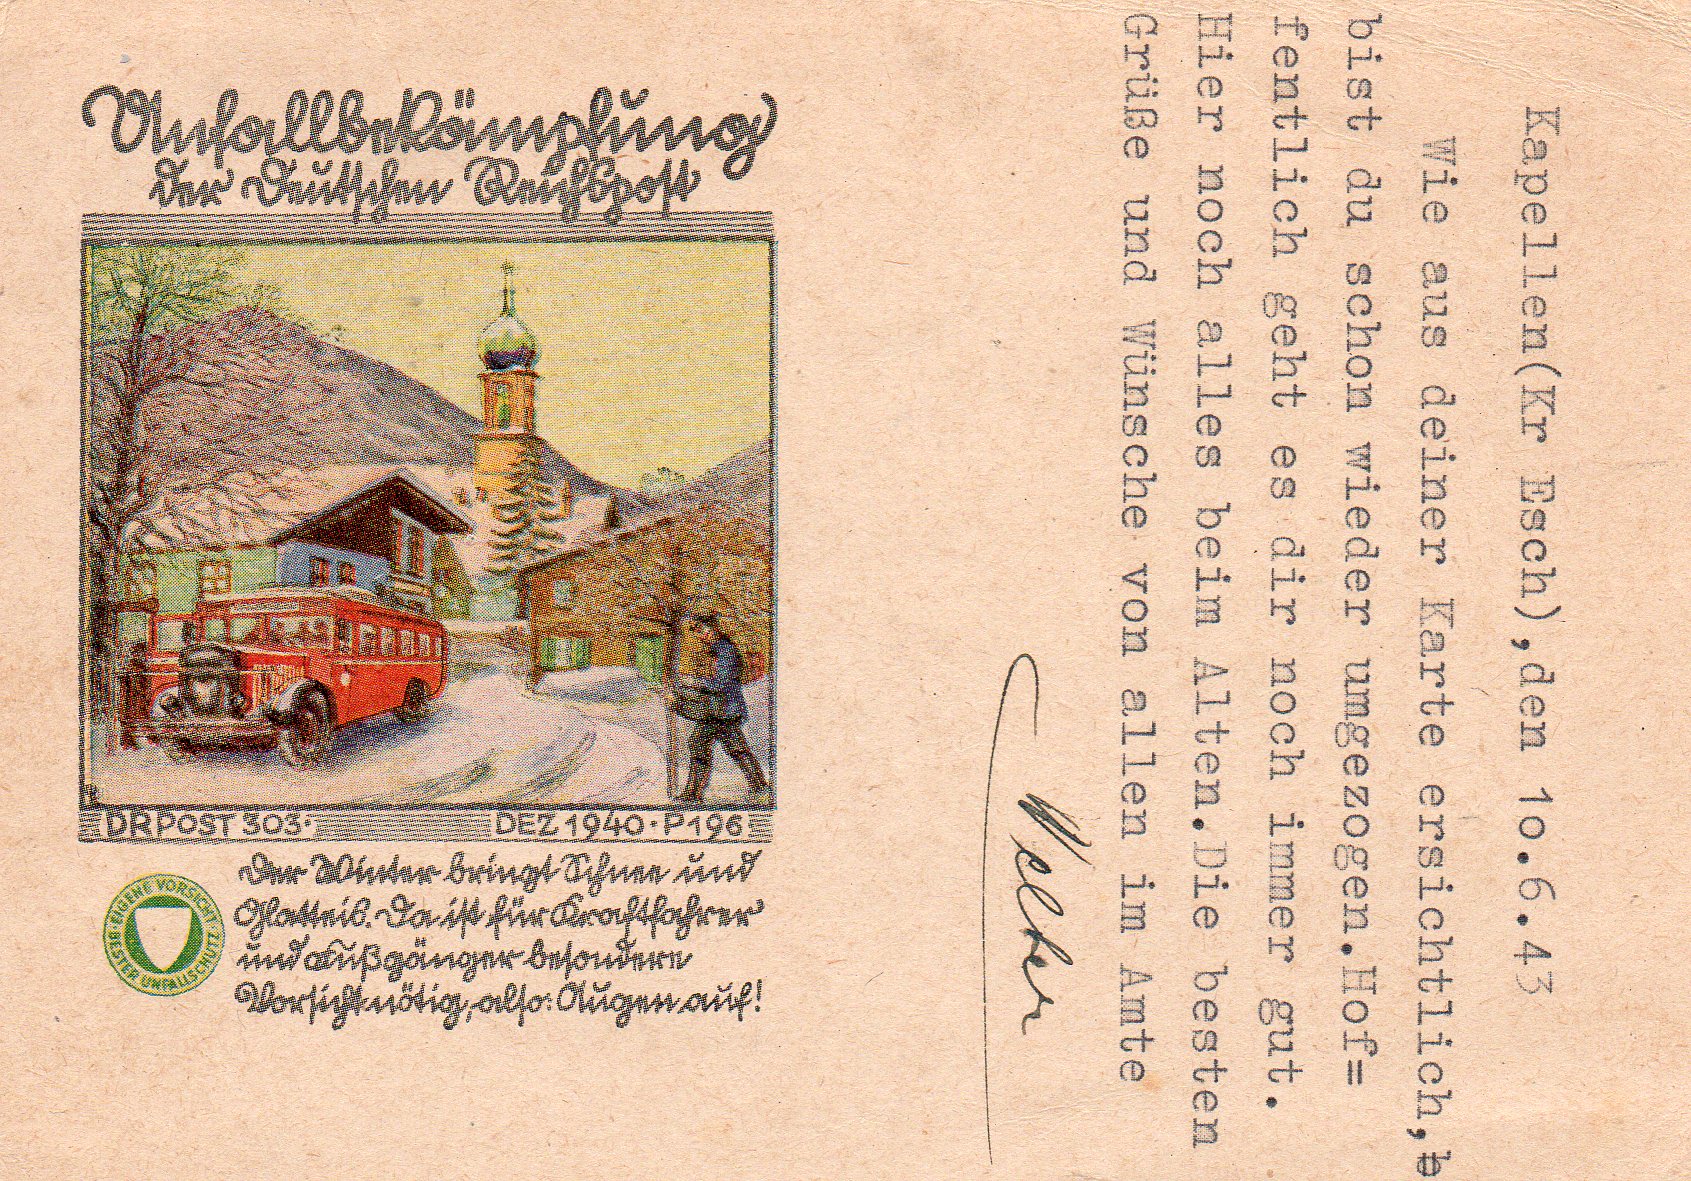 Unfallbekämpfung
der Deutschen Reichspost
DR POST 303·
DEZ 1940·P196
Der Winter bringt Schnee und
Glatteis. Da ist für Kraftfahrer
und Fußgänger besondere
Vorsicht nötig, also: Augen auf!
·EIGENE VORSICHT·
BESTER UNFALLSCHUTZ
Kapellen(Kr Esch),den 1o.6.43
Wie aus deiner Karte ersichtlich,b
bist du schon wieder umgezogen.Hof=
fentlich geht es dir noch immer gut.
Hier noch alles beim Alten.Die besten
Grüße und Wünsche von allen im Amte